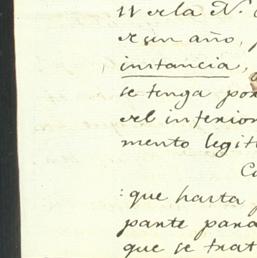 er la N.
un año,
instancia,
se tenga por
el inferior
mento legiti
: que hasta
pante para
que se trat